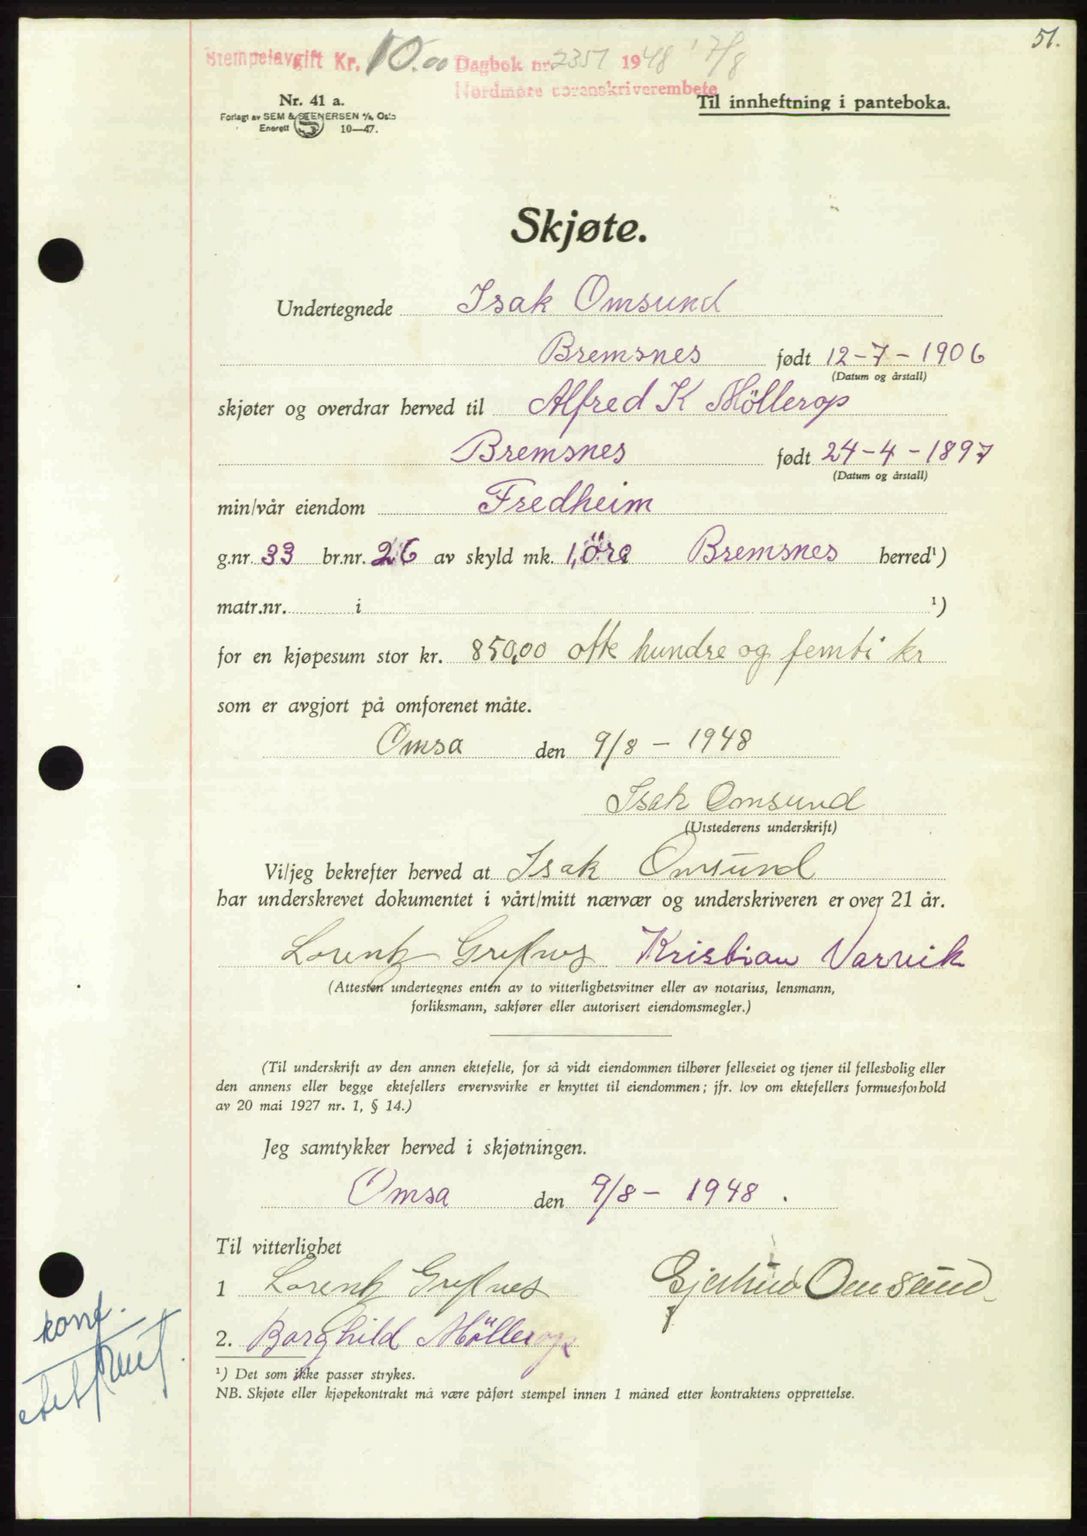 51.
Stempelavgift Kr. 10.00 Dagbok nr. 2351 1948 17/8
Nordmøre sorenskriverembete
Nr. 41 a.
Til innheftning i panteboka.
Forlagt av SEM & STENERSEN A/S, Oslo
Enerett 10—47.
Skjøte.
Undertegnede Isak Omsund
Bremsnes født 12-7-1906
(Datum og årstall)
skjøter og overdrar herved til Alfred K Möllerop
Bremsnes født 24-4-1897
(Datum og årstall)
min/vår eiendom Fredheim
g.nr. 33 br.nr. 26 av skyld mk. 1, öre Bremsnes herred¹)
matr.nr. i ¹)
for en kjøpesum stor kr. 850,00 otte hundre og femti kr
som er avgjort på omforenet måte.
Omsa den 9/8 - 1948
Isak Omsund
(Utstederens underskrift)
Vi/jeg bekrefter herved at Isak Omsund
har underskrevet dokumentet i vårt/mitt nærvær og underskriveren er over 21 år.
Lorentz Kristian Varvik
(Attesten undertegnes enten av to vitterlighetsvitner eller av notarius, lensmann,
forliksmann, sakfører eller autorisert eiendomsmegler.)
(Til underskrift av den annen ektefelle, for så vidt eiendommen tilhører felleseiet og tjener til fellesbolig eller
den annens eller begge ektefellers ervervsvirke er knyttet til eiendommen; jfr. lov om ektefellers formuesforhold
av 20 mai 1927 nr. 1, § 14.)
Jeg samtykker herved i skjøtningen.
Omsa den 9/8 - 1948.
Til vitterlighet
1 Lorentz Gjertrud Omsund
2. Borghild Möllerop
konf.
¹) Det som ikke passer strykes.
NB. Skjøte eller kjøpekontrakt må være påført stempel innen 1 måned etter kontraktens opprettelse.